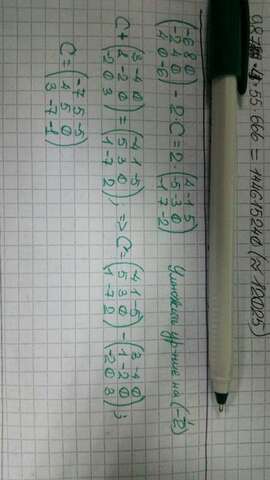 55 · 666 = 114615240 (≈ 120025)
(-6 8 0
-2 4 0
4 0 -6) - 2·C = 2·(4 -1 5
-5 3 0
-1 7 -2) Умножить ур-ние на (-1/2)
C + (3 -4 0
1 -2 0
-2 0 3) = (-4 1 -5
5 3 0
1 -7 2); => C = (-4 1 -5
5 3 0
1 -7 2) - (3 -4 0
1 -2 0
-2 0 3);
C = (-7 5 -5
4 5 0
3 -7 -1)